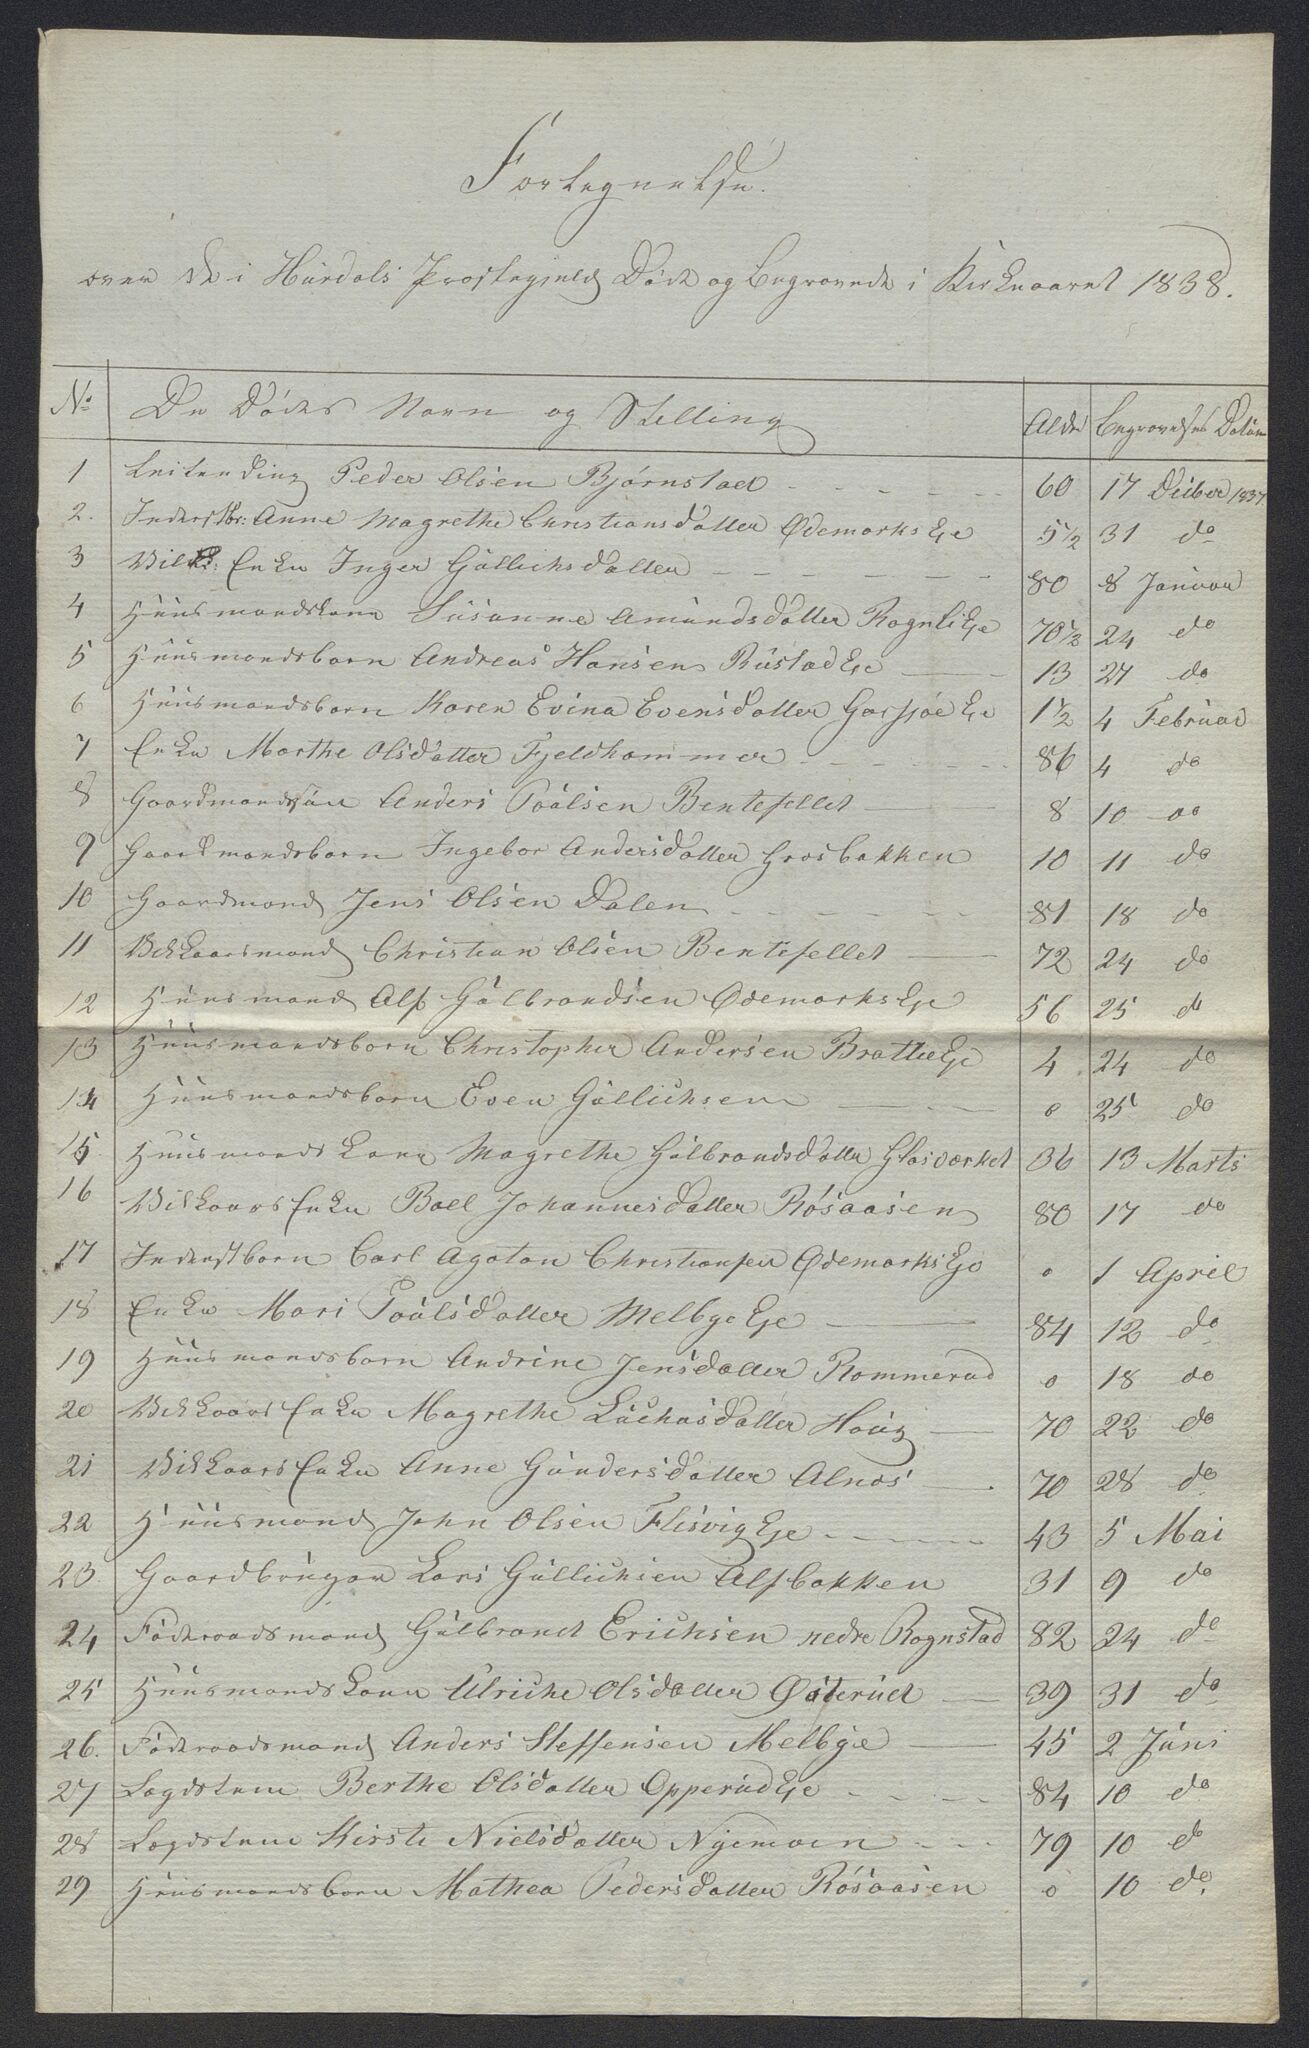 Fortegnelse.
over de i Hürdals Præstegjeld Døde og Begravede i Kirkeaaret 1838.
No De Dødes Navn og Stelling Alder Begravelses Datüm
1 Leilending Peder Olsen Bjørnstad 60 17 Decber 1837
2. Inderstbr: Anne Magrethe Christiansdatter Ødemarks Eje 5 1/2 31 do
3 Vilk: Enke Inger Güllichsdatter 80 8 Janüar
4 Hüüsmandskone Süsanne Amündsdatter Rognli Eje 70 1/2 24 do
5 Hüüsmandsbarn Andreas Hansen Rüstad Eje 13 27 do
6 Hüüsmandsbarn Karen Evina Evensdatter Garsjøe Eje 1 1/2 4 Febrüar
7 Enke Marthe Olsdatter Fjeldhammer 86 4 do
8 Gaardmandsøn Anders Poülsen Bentefellet 8 10 do
9 Gaardmandsbarn Ingebor Andersdatter Grøsbakken 10 11 do
10 Gaardmand Jens Olsen Dalen 81 18 do
11 Vilkaarsmand Christian Olsen Bentefellet 72 24 do
12 Hüüsmand Alf Gülbrandsen Ødemarks Eje 56 25 do
13 Hüüsmandsbarn Christopher Andersen Brattlie Eje 4 24 do
14 Hüüsmandsbarn Even Güllichsen 0 25 do
15. Hüüsmandskone Magrethe Gülbrandsdatter Glasværket 36 13 Marts
16 Vilkaars Enke Boel Johannesdatter Røsaasen 80 17 do
17 Inderstbarn Carl Agaton Christiansen Ødemarks Eje 0 1 April
18 Enke Mari Poülsdatter Melbye Eje 84 12 do
19 Hüüsmandsbarn Andrine Jensdatter Rommerud 0 18 do
20 Vilkaars Enke Magrethe Lüchasdatter Haüg 70 22 do
21 Vilkaars Enke Anne Gündersdatter Alnæs 70 28 do
22 Hüüsmand John Olsen Flesvig Eje 43 5 Mai
23. Gaardbrüger Lars Güllichsen Alfbakken 31 9 do
24 Føderaadsmand Gülbrand Erichsen nedre Rognstad 82 24 do
25 Hüüsmandskone Ulriche Olsdatter Østerüd 39 31 do
26. Føderaadsmand Anders Steffensen Melbye 45 2 Jüni
27 Lægdslem Berthe Olsdatter Opperüd Eje 84 10 do
28 Lægdslem Kirsti Nielsdatter Nyemoen 79 10 do
29 Hüüsmandsbarn Mathea Pedersdatter Røsaasen 0 10 do.